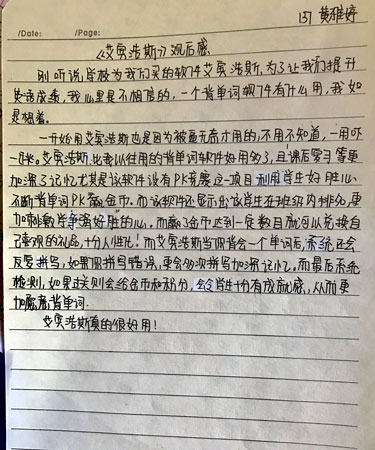 137 黄雅婷
/Date: /Page:
《艾宾浩斯》观后感
刚听说学校为我们买的软件艾宾浩斯,为了让我们提升
英语成绩,我心里是不相信的,一个背单词软件有什么用,我如
是想着。
一开始用艾宾浩斯也是因为被逼无奈才用的,不用不知道,一用吓
一跳。艾宾浩斯比我以往用的背单词软件好用多了,且课后复习等更
加深了记忆尤其是该软件设有PK竞赛这一项目利用学生好胜心,
不断背单词PK赢金币。而该软件还显示出该学生在班级内排名,更
加刺激学生争强好胜的心。而赢了金币达到一定数目就可以兑换自
己喜欢的礼品,十分人性化!而艾宾浩斯当你背会一个单词后,系统还会
反复拼写,如果你拼写错误,更会多次拼写加深记忆。而最后系统
检测,如果过关则会给金币和积分,会令学生十分有成就感,从而更
加愿意背单词.
艾宾浩斯真的很好用!